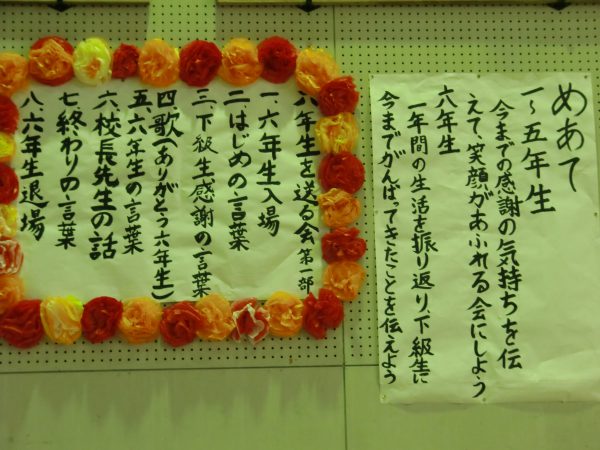 めあて
一～五年生
今までの感謝の気持ちを伝
えて、笑顔があふれる会にしよう
六年生
一年間の生活を振り返り、下級生に
今までがんばってきたことを伝えよう
六年生を送る会 第一部
一、六年生入場
二、はじめの言葉
三、下級生感謝の言葉
四、歌(ありがとう六年生)
五、六年生の言葉
六、校長先生の話
七、終わりの言葉
八、六年生退場